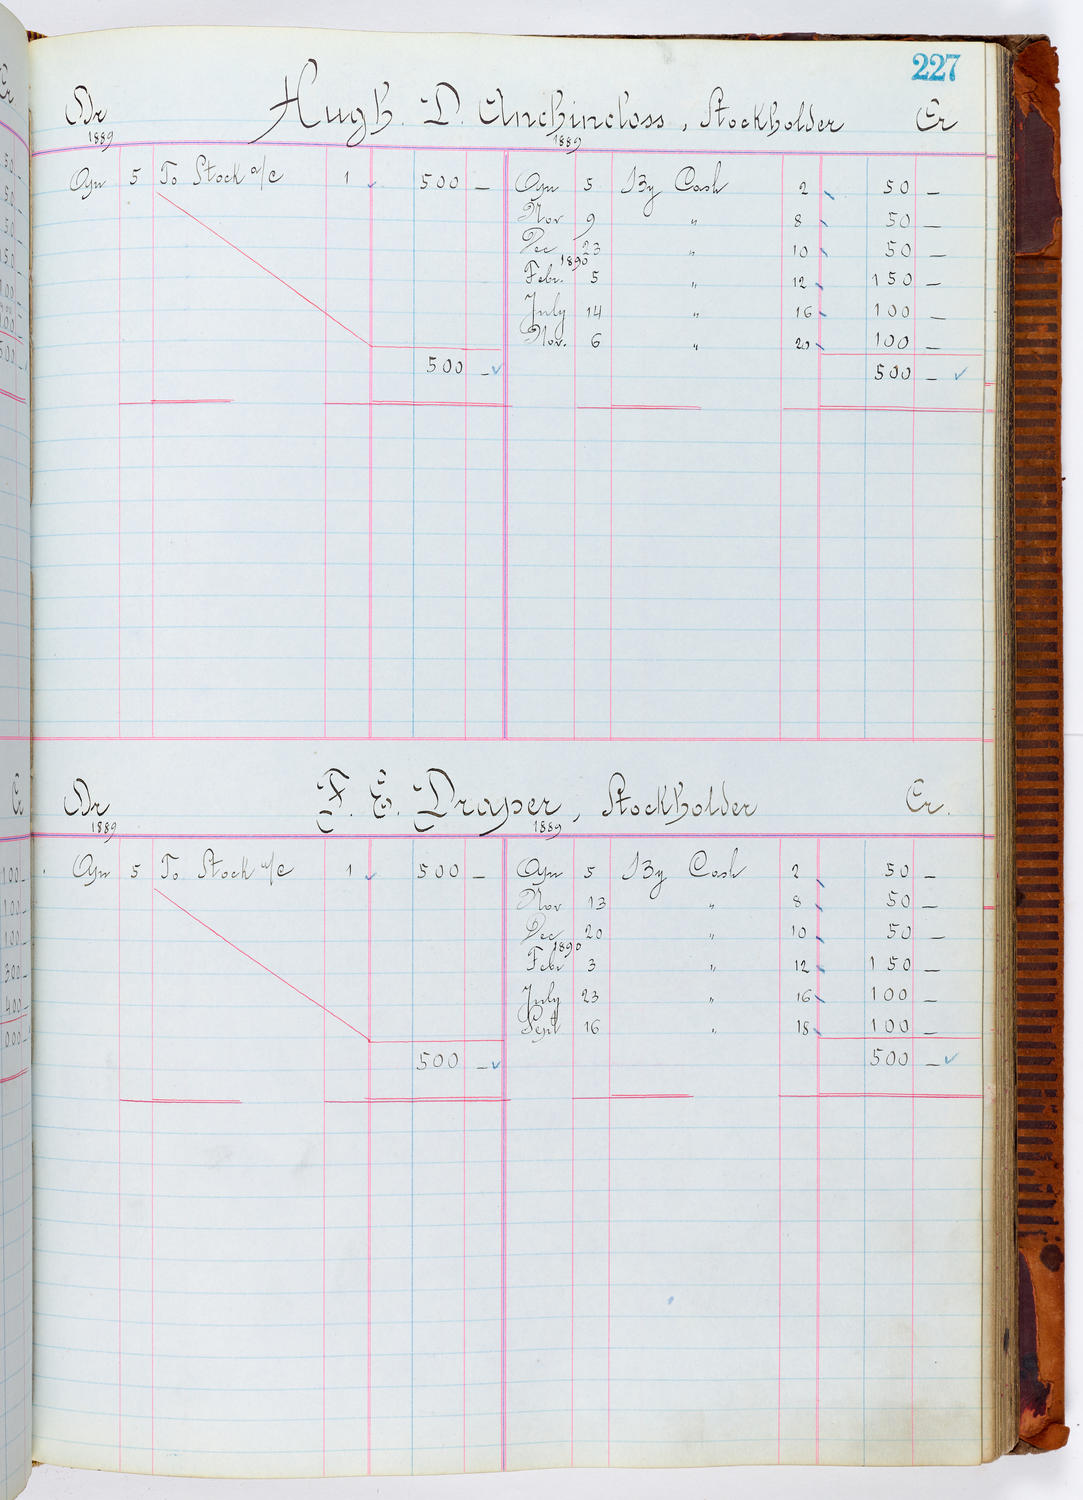 227
Dr Hugh. D. Auchincloss, Stockholder Cr
1889 1889
Apr 5 To Stock a/c 1 500 — Apr 5 By Cash 2 50 —
Nov 9 " 8 50 —
Dec 23 " 10 50 —
1890
Febr. 5 " 12 150 —
July 14 " 16 100 —
Nov. 6 " 20 100 —
500 — 500 —
Dr F. E. Draper, Stockholder Cr.
1889 1889
Apr 5 To Stock a/c 1 500 — Apr 5 By Cash 2 50 —
Nov 13 " 8 50 —
Dec 20 " 10 50 —
1890
Febr 3 " 12 150 —
July 23 " 16 100 —
Sept 16 " 18 100 —
500 — 500 —